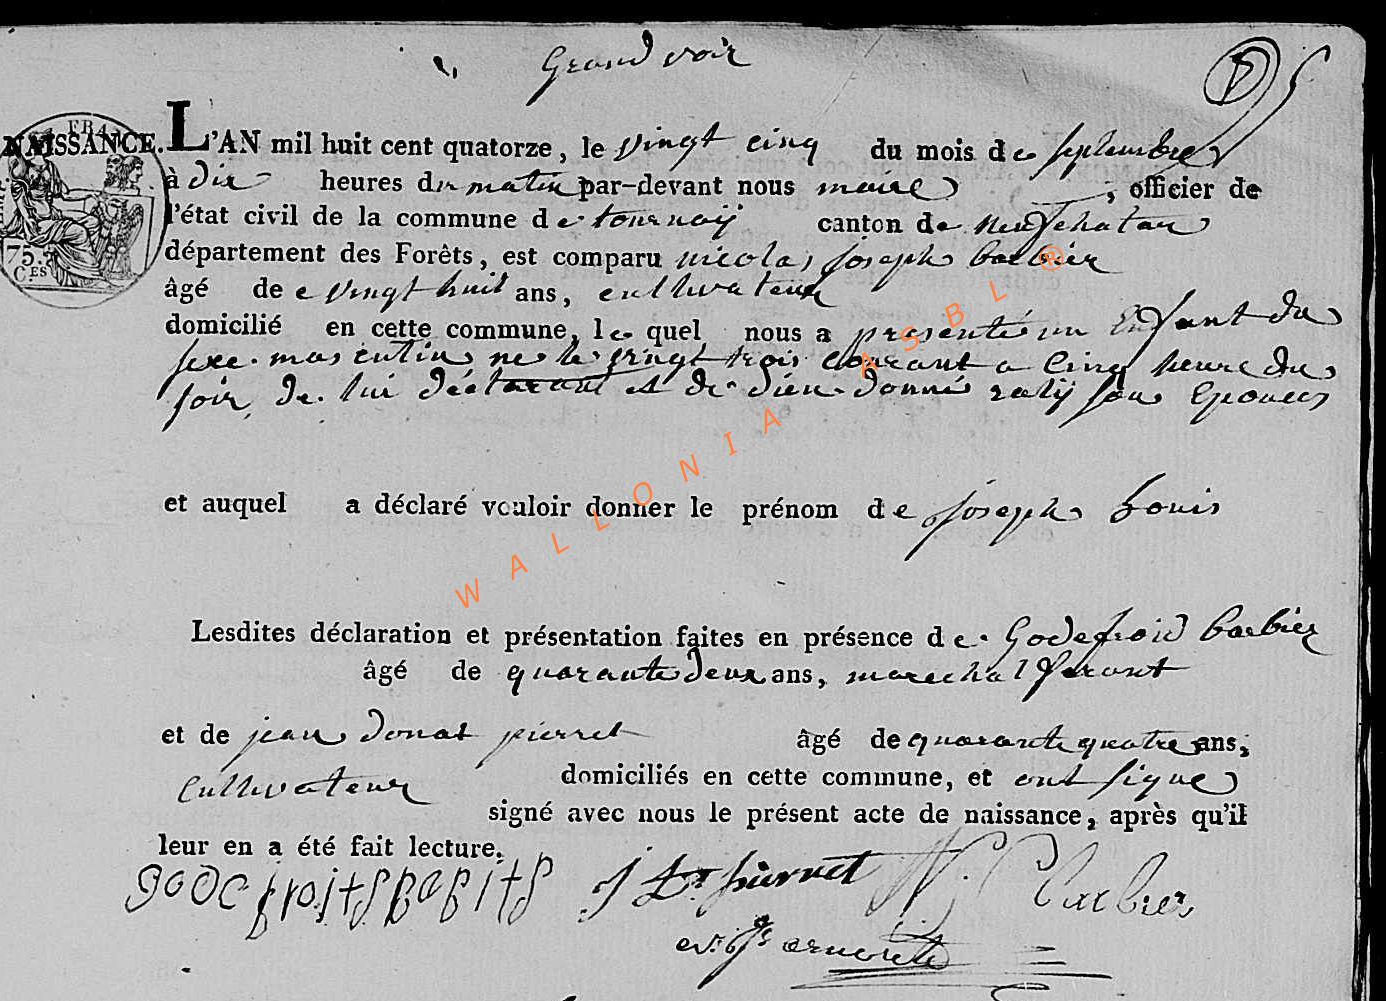 Grand voir
NAISSANCE. L'AN mil huit cent quatorze, le vingt cinq du mois de septembre
à dix heures du matin par-devant nous maire, officier de
l'état civil de la commune de tournaÿ canton de neufchatau
département des Forêts, est comparu nicolas joseph barbier
âgé de vingt huit ans, cultivateur
domicilié en cette commune, le quel nous a presenté un Enfant du
sexe masculin ne le vingt trois courant a Cinq heure du
soir, de lui déclarant et de dieu donné son Epouses
et auquel a déclaré vouloir donner le prénom de joseph Louis
Lesdites déclaration et présentation faites en présence de Godefroid barbier
âgé de quarante deux ans, marechal ferant
et de jean donat pierret âgé de quarante quatre ans,
Cultivateur domiciliés en cette commune, et ont signe
signé avec nous le présent acte de naissance, après qu'il
leur en a été fait lecture.
J D pierret N J Barbier
75.
CES
WALLONIA ASBL ®